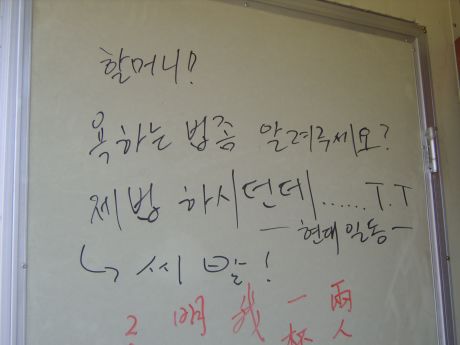 할머니!
욕하는 법좀 알려주세요?
제법 하시던데......T.T
- 현대 일동 -
↳ 씨 발!
兩人
一杯
我
明
?